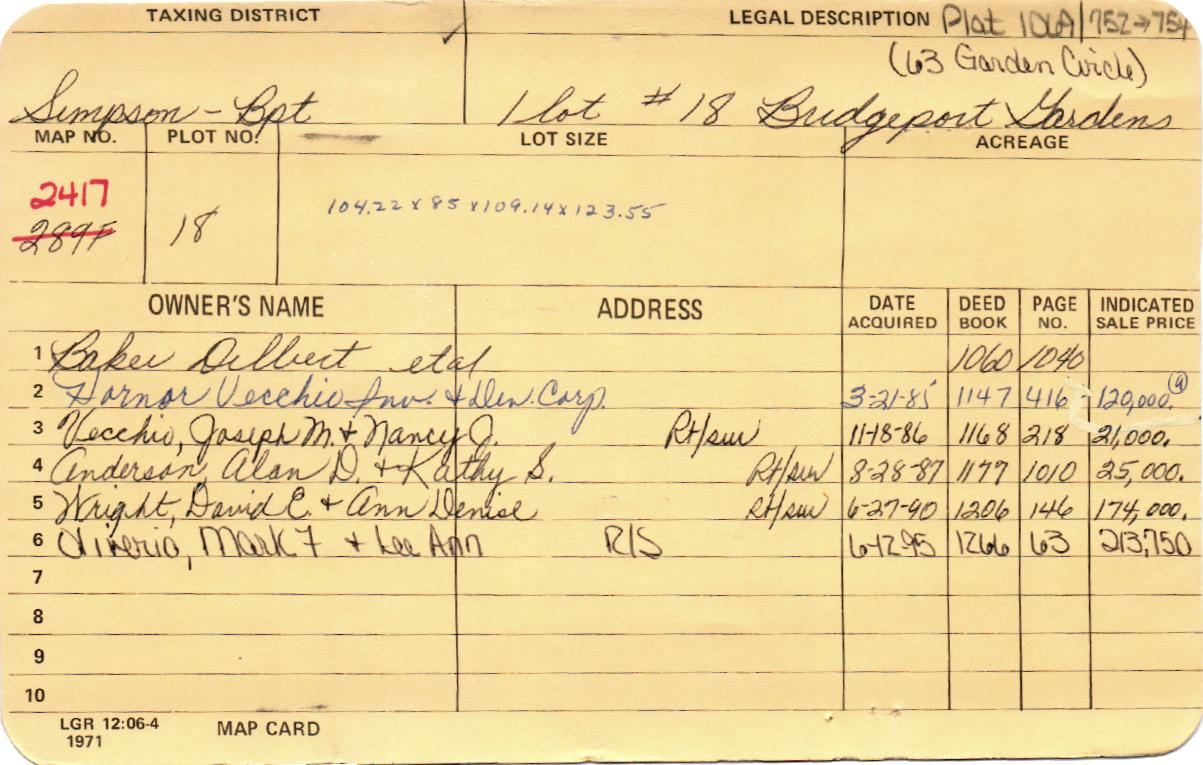 TAXING DISTRICT LEGAL DESCRIPTION Plat 106A/752→754
(63 Garden Circle)
Simpson - Bpt 1 lot # 18 Bridgeport Gardens
MAP NO. PLOT NO. LOT SIZE ACREAGE
2417
289F 18 104.22 x 85 x 109.14 x 123.55
OWNER'S NAME ADDRESS DATE ACQUIRED DEED BOOK PAGE NO. INDICATED SALE PRICE
1 Baker Delbert etal 1060 1040
2 Hornor Vecchio Inv. & Dev. Corp. 3-21-85 1147 416 120,000. (a)
3 Vecchio, Joseph M. & Nancy J. Rt/sur 11-18-86 1168 218 21,000.
4 Anderson, Alan D. & Kathy S. Rt/sur 8-28-87 1177 1010 25,000.
5 Wright, David E. & Ann Denise Rt/sur 6-27-90 1206 146 174,000.
6 Oliverio, Mark F & Lee Ann R/S 6-12-95 1266 63 213,750
7
8
9
10
LGR 12:06-4 MAP CARD
1971